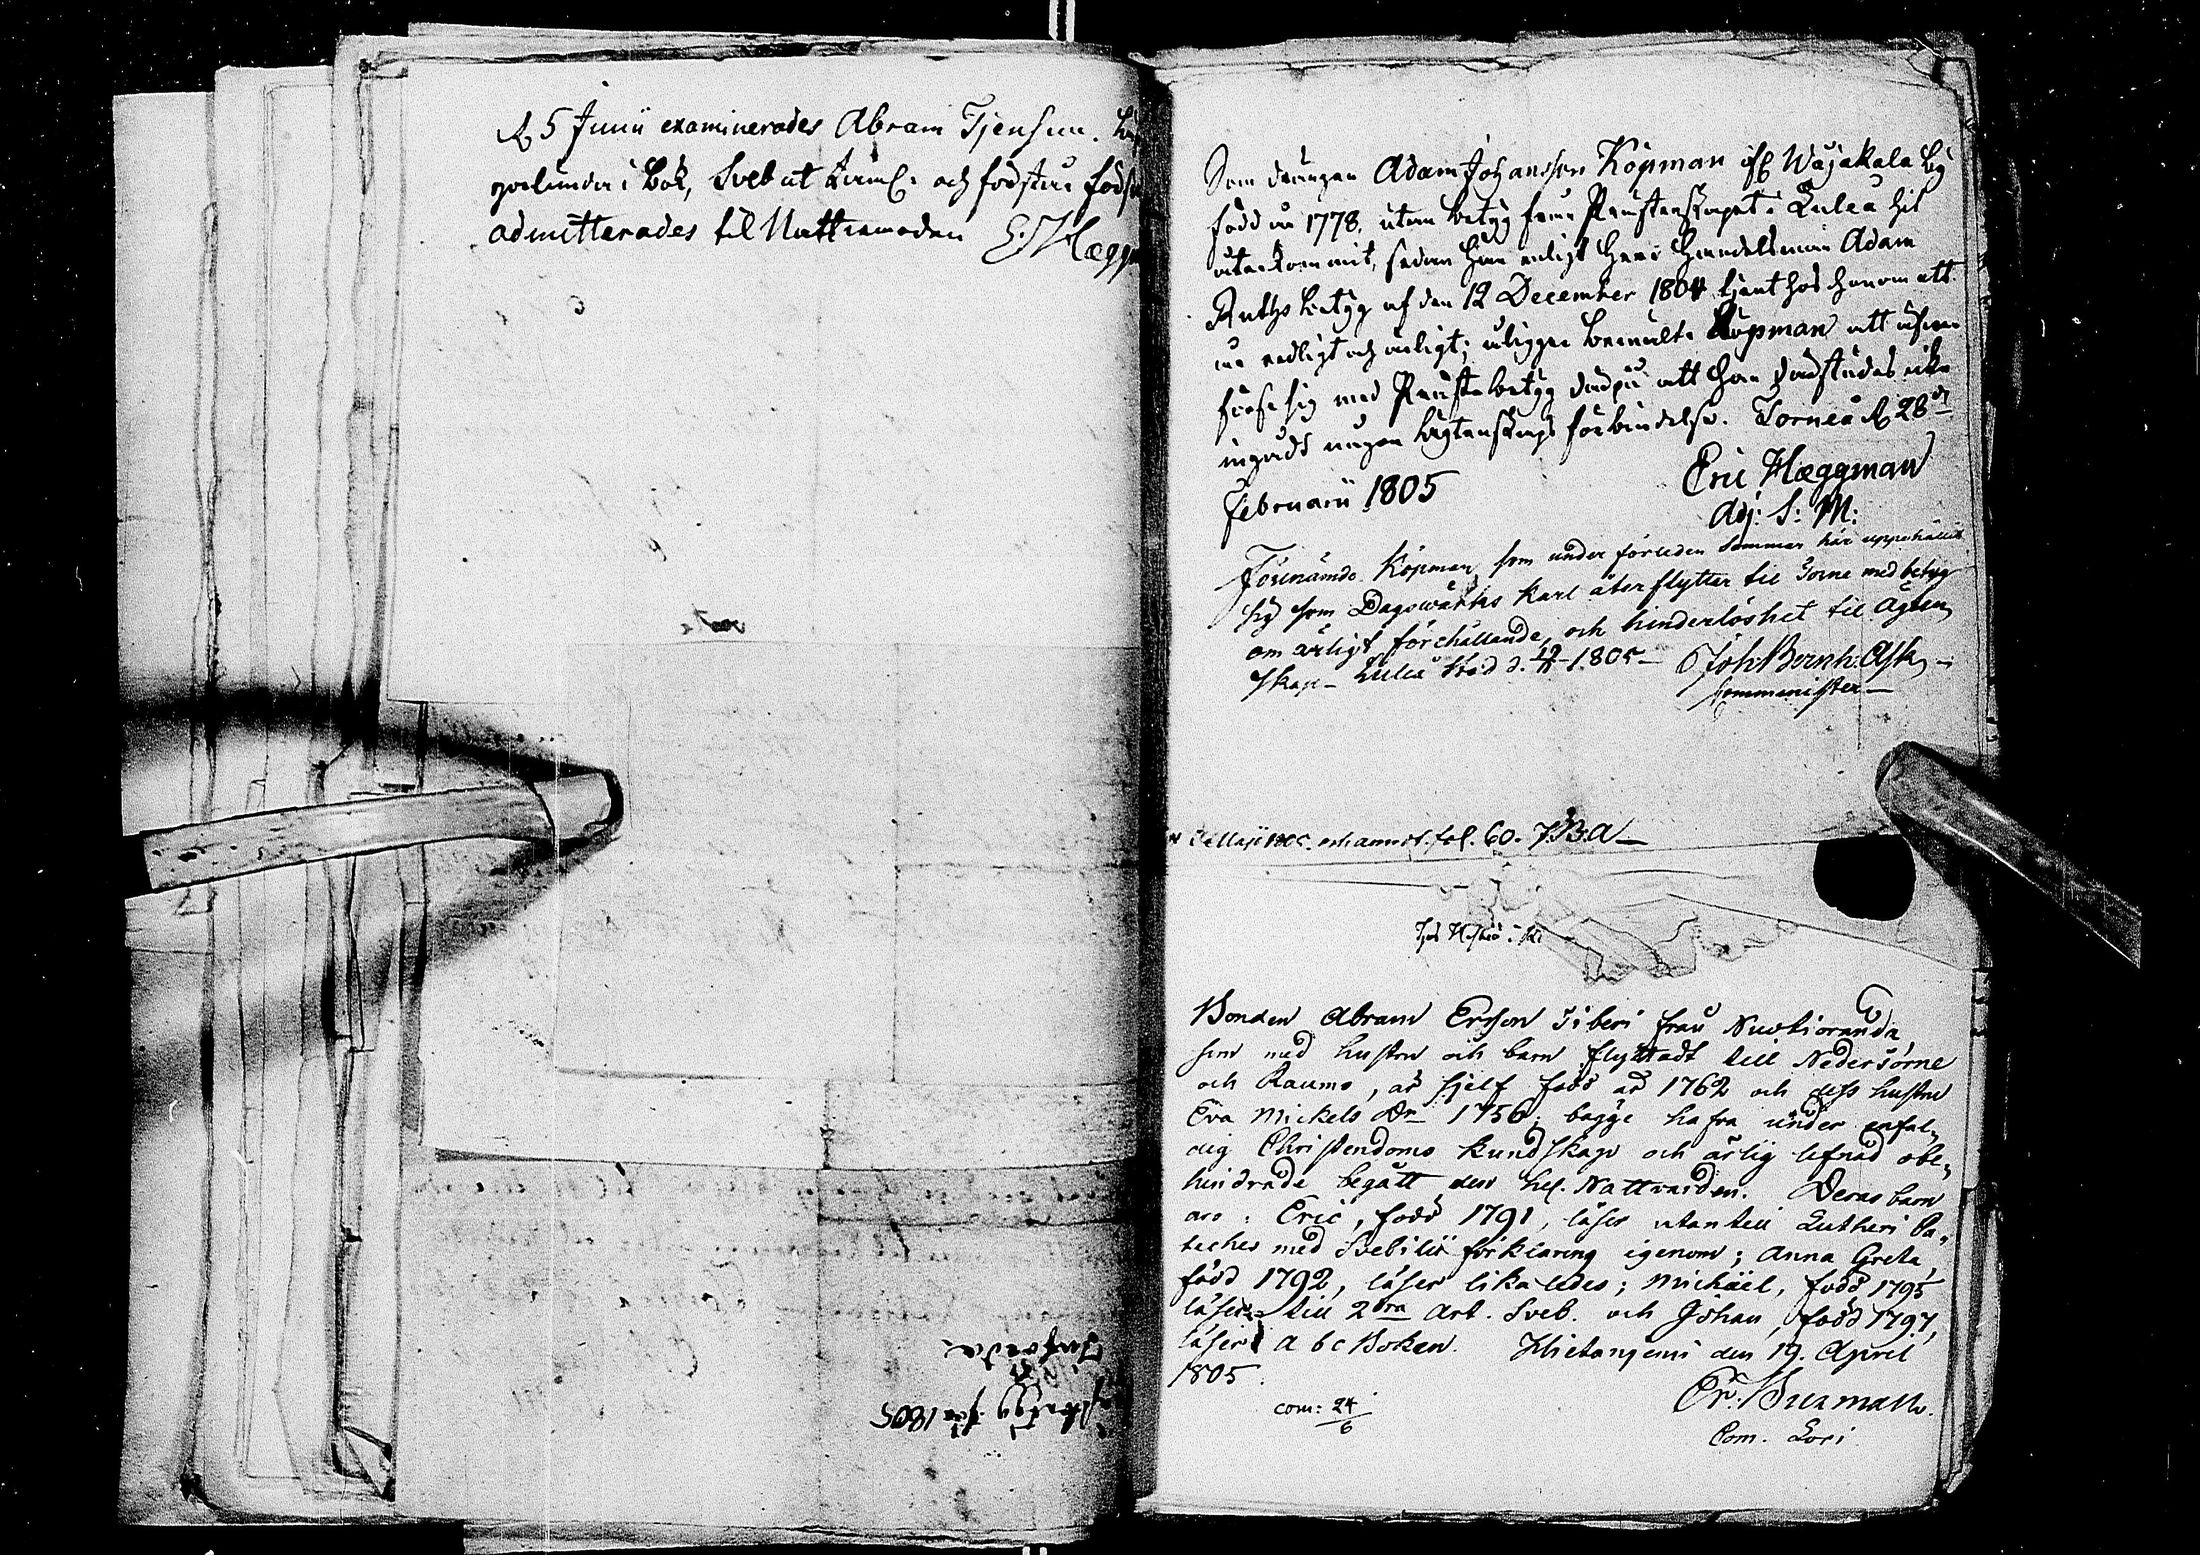 5 Junii examinerades Abram
i Bok, Sveb. ut och förstår
admitterades til Nattvarden
Som drängen Adam Johansson Köpman af Wojakala by
född år 1778, utan betyg från Prästerskapet i Luleå hit
återkommit, sedan han enligt Herr Handelsman Adam
Ruths betyg af den 12 December 1804 tjent hos honom
redligt och ärligt; åligger bemälte Köpman att
sig med Prästebetyg derpå att han derstädes icke
ingådt någon ägtenskaps förbindelse. Torneå d. 28
Februarii 1805
Eric Hæggman
Adj: S: M:
Förenämde Köpman som under förleden Sommar här uppehållit
sig som Dagswärks karl återflytter til Torne med betyg
om ärligt förehållande, och hinderlöshet til ägten
skap - Luleå Stad d. 1805 - Joh: Bernh: Ask
Comminister
fol. 60. J.B.A
Bonden Abram Erson från
som med hustru och barn flyttadt till Nedertorne
och Raumo, är sjelf född år 1762 och dess hustru
Eva Mickels Dr 1756; bägge hafva under enfal-
dig Christendoms kundskap och ärlig lefnad obe-
hindrade begått den hel. Nattvarden. Deras barn
äro: Eric, född 1791, läser utantill Lutheri Ca-
teches med Svebilii förklaring igenom; Anna Greta,
född 1792, läser lika ledes; Michäel, född 1795
läser till 2dra Art. Sveb. och Johan, född 1797,
läser A b c Boken. Hietaniemi den 19. April
1805.
com: 24/6
Com. Loci
Infördæ
1805